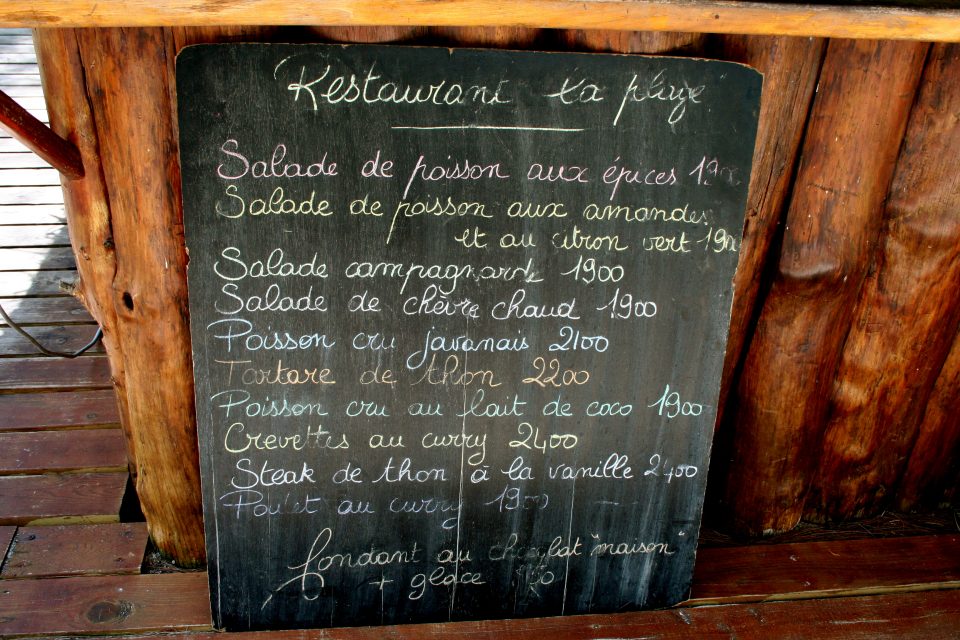 Restaurant la plage
Salade de poisson aux épices
Salade de poisson aux amandes
et au citron vert
Salade campagnarde 1900
Salade de chèvre chaud 1900
Poisson cru javanais 2100
Tartare de thon 2200
Poisson cru au lait de coco 1900
Crevettes au curry 2400
Steak de thon à la vanille 2400
Poulet au curry 1900
fondant au chocolat "maison"
+ glace